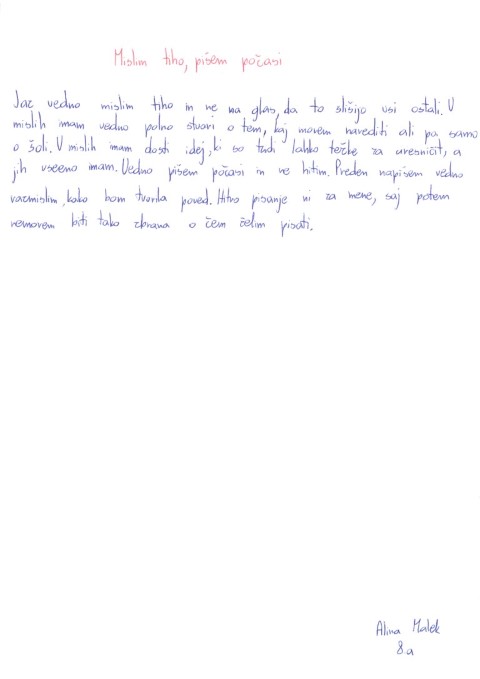 Mislim tiho, pišem počasi
Jaz vedno mislim tiho in ne na glas, da to slišijo vsi ostali. V
mislih imam vedno polno stvari o tem, kaj moram narediti ali pa samo
o šoli. V mislih imam dosti idej, ki so tudi lahko težke za uresničit, a
jih vseeno imam. Vedno pišem počasi in ne hitim. Preden napišem vedno
razmislim, kako bom tvorila poved. Hitro pisanje ni za mene, saj potem
nemorem biti tako zbrana o čem želim pisati.
Alina Malek
8a